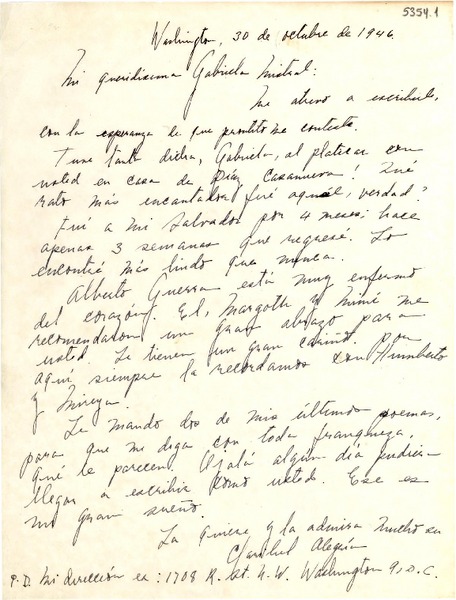 5354.1
Washington, 30 de octubre de 1946
Mi queridisima Gabriela Mistral:
Me atrevo a escribirle,
con la esperanza de que prontito me conteste.
Tuve tanta dicha, Gabriela, al platicar con
usted en casa de Díaz Casanueva! Qué
rato más encantador fué aquél, verdad?
Fuí a mi Salvador por 4 meses; hace
apenas 3 semanas que regresé. Lo
encontré más lindo que nunca.
Alberto Guerra está muy enfermo
del corazón. El, Margoth y Mimí me
recomendaron un gran abrazo para
usted. Le tienen un gran cariño. Por
aquí siempre la recordamos con Humberto
y Mireya.
Le mando dos de mis últimos poemas,
para que me diga con toda franqueza,
qué le parecen. Ojalá algún día pudiera
llegar a escribir como usted. Ese es
mi gran sueño.
La quiere y la admira mucho su
Claribel Alegría
P.D. Mi dirección es: 1708 R. St. N.W. Washington 9, D.C.